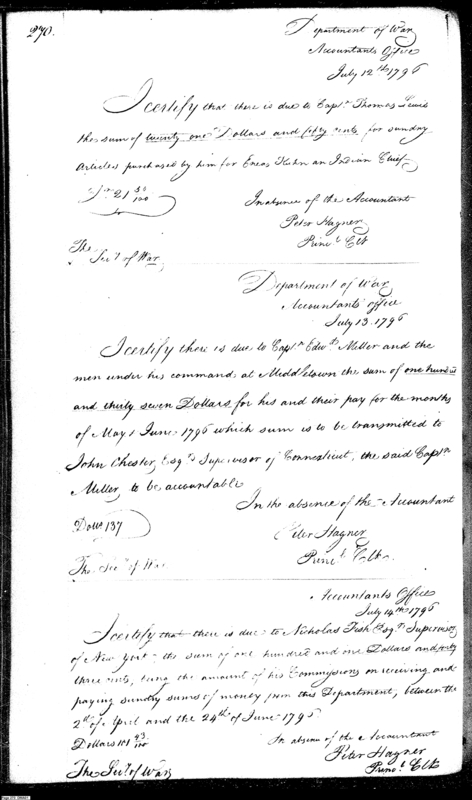 270.
Department of War
Accountants Office
July 12th 1796
I certify that there is due to Capt. Thomas Lewis
the sum of twenty one Dollars and fifty cents for sunday
articles purchased by him for Eneas Kuhn an Indian Chief
21 50/100
In absence of the Accountant
Peter Hagner
Princl. Clk
The
Secy of War
Department of War
Accountants office
July 13. 1796
I certify there is due to Captn Edwd. Miller and the
men under his command at Middletown the sum of one hundred
and thirty seven Dollars for his and their pay for the months
of May & June 1796 which sum is to be transmitted to
John Chester Esqr. Supervisor of Connecticut, the said Captn
Miller to be accountable
In the absence of the Accountant
Dolls. 137
Peter Hagner
Princl. Clk.
The Secy of War
Accountants Office
July 14th 1796
I certify that there is due to Nicholas Fish Esqr. Supervisor
of New York the sum of one hundred and one Dollars and forty
three cents, being the amount of his Commissions on receiving and
paying sundry sums of money from this Department, between the
2d of April and the 24th of June 1796
Dollars 101 43/100
In absence of the Accountant
Peter Hagner
The Secy of War
Princl. Clk